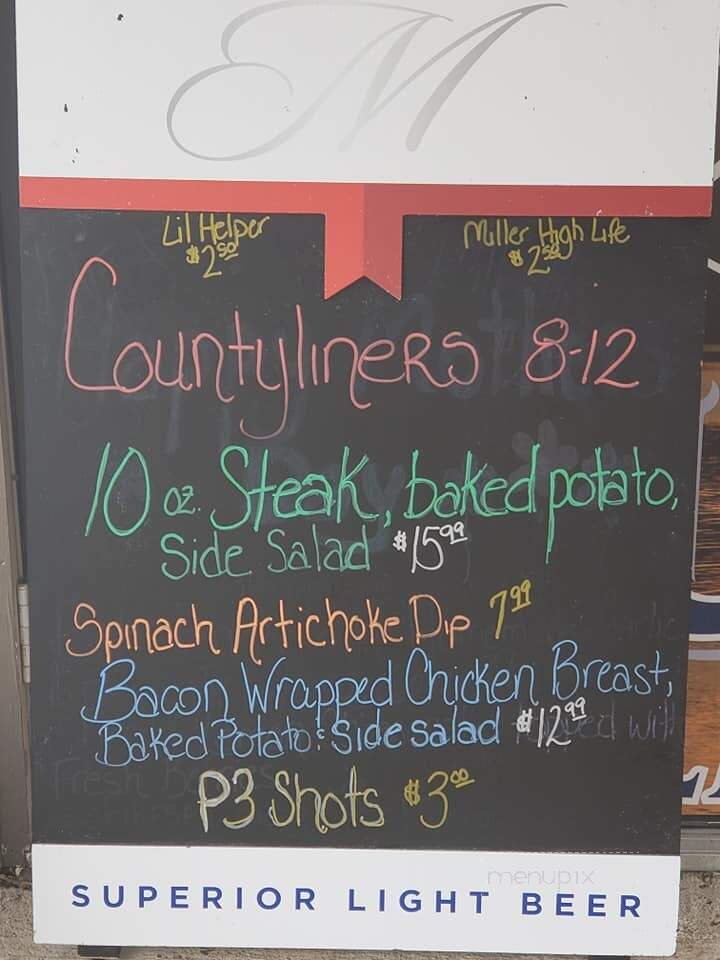 M
Lil Helper
$2.50
Miller High Life
$2.50
Countyliners 8-12
10 oz. Steak, baked potato,
Side Salad $15.99
Spinach Artichoke Dip 7.99
Bacon Wrapped Chicken Breast,
Baked Potato: Side salad $12.99
P3 Shots $3.00
menupix
SUPERIOR LIGHT BEER